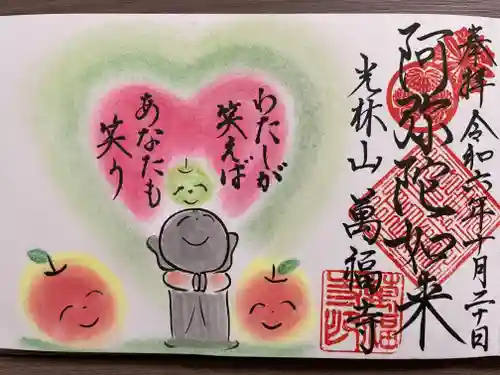 奉拝
令和六年十月二十日
阿弥陀如来
光林山
萬福寺
わたしが
笑えば
あなたも
笑う